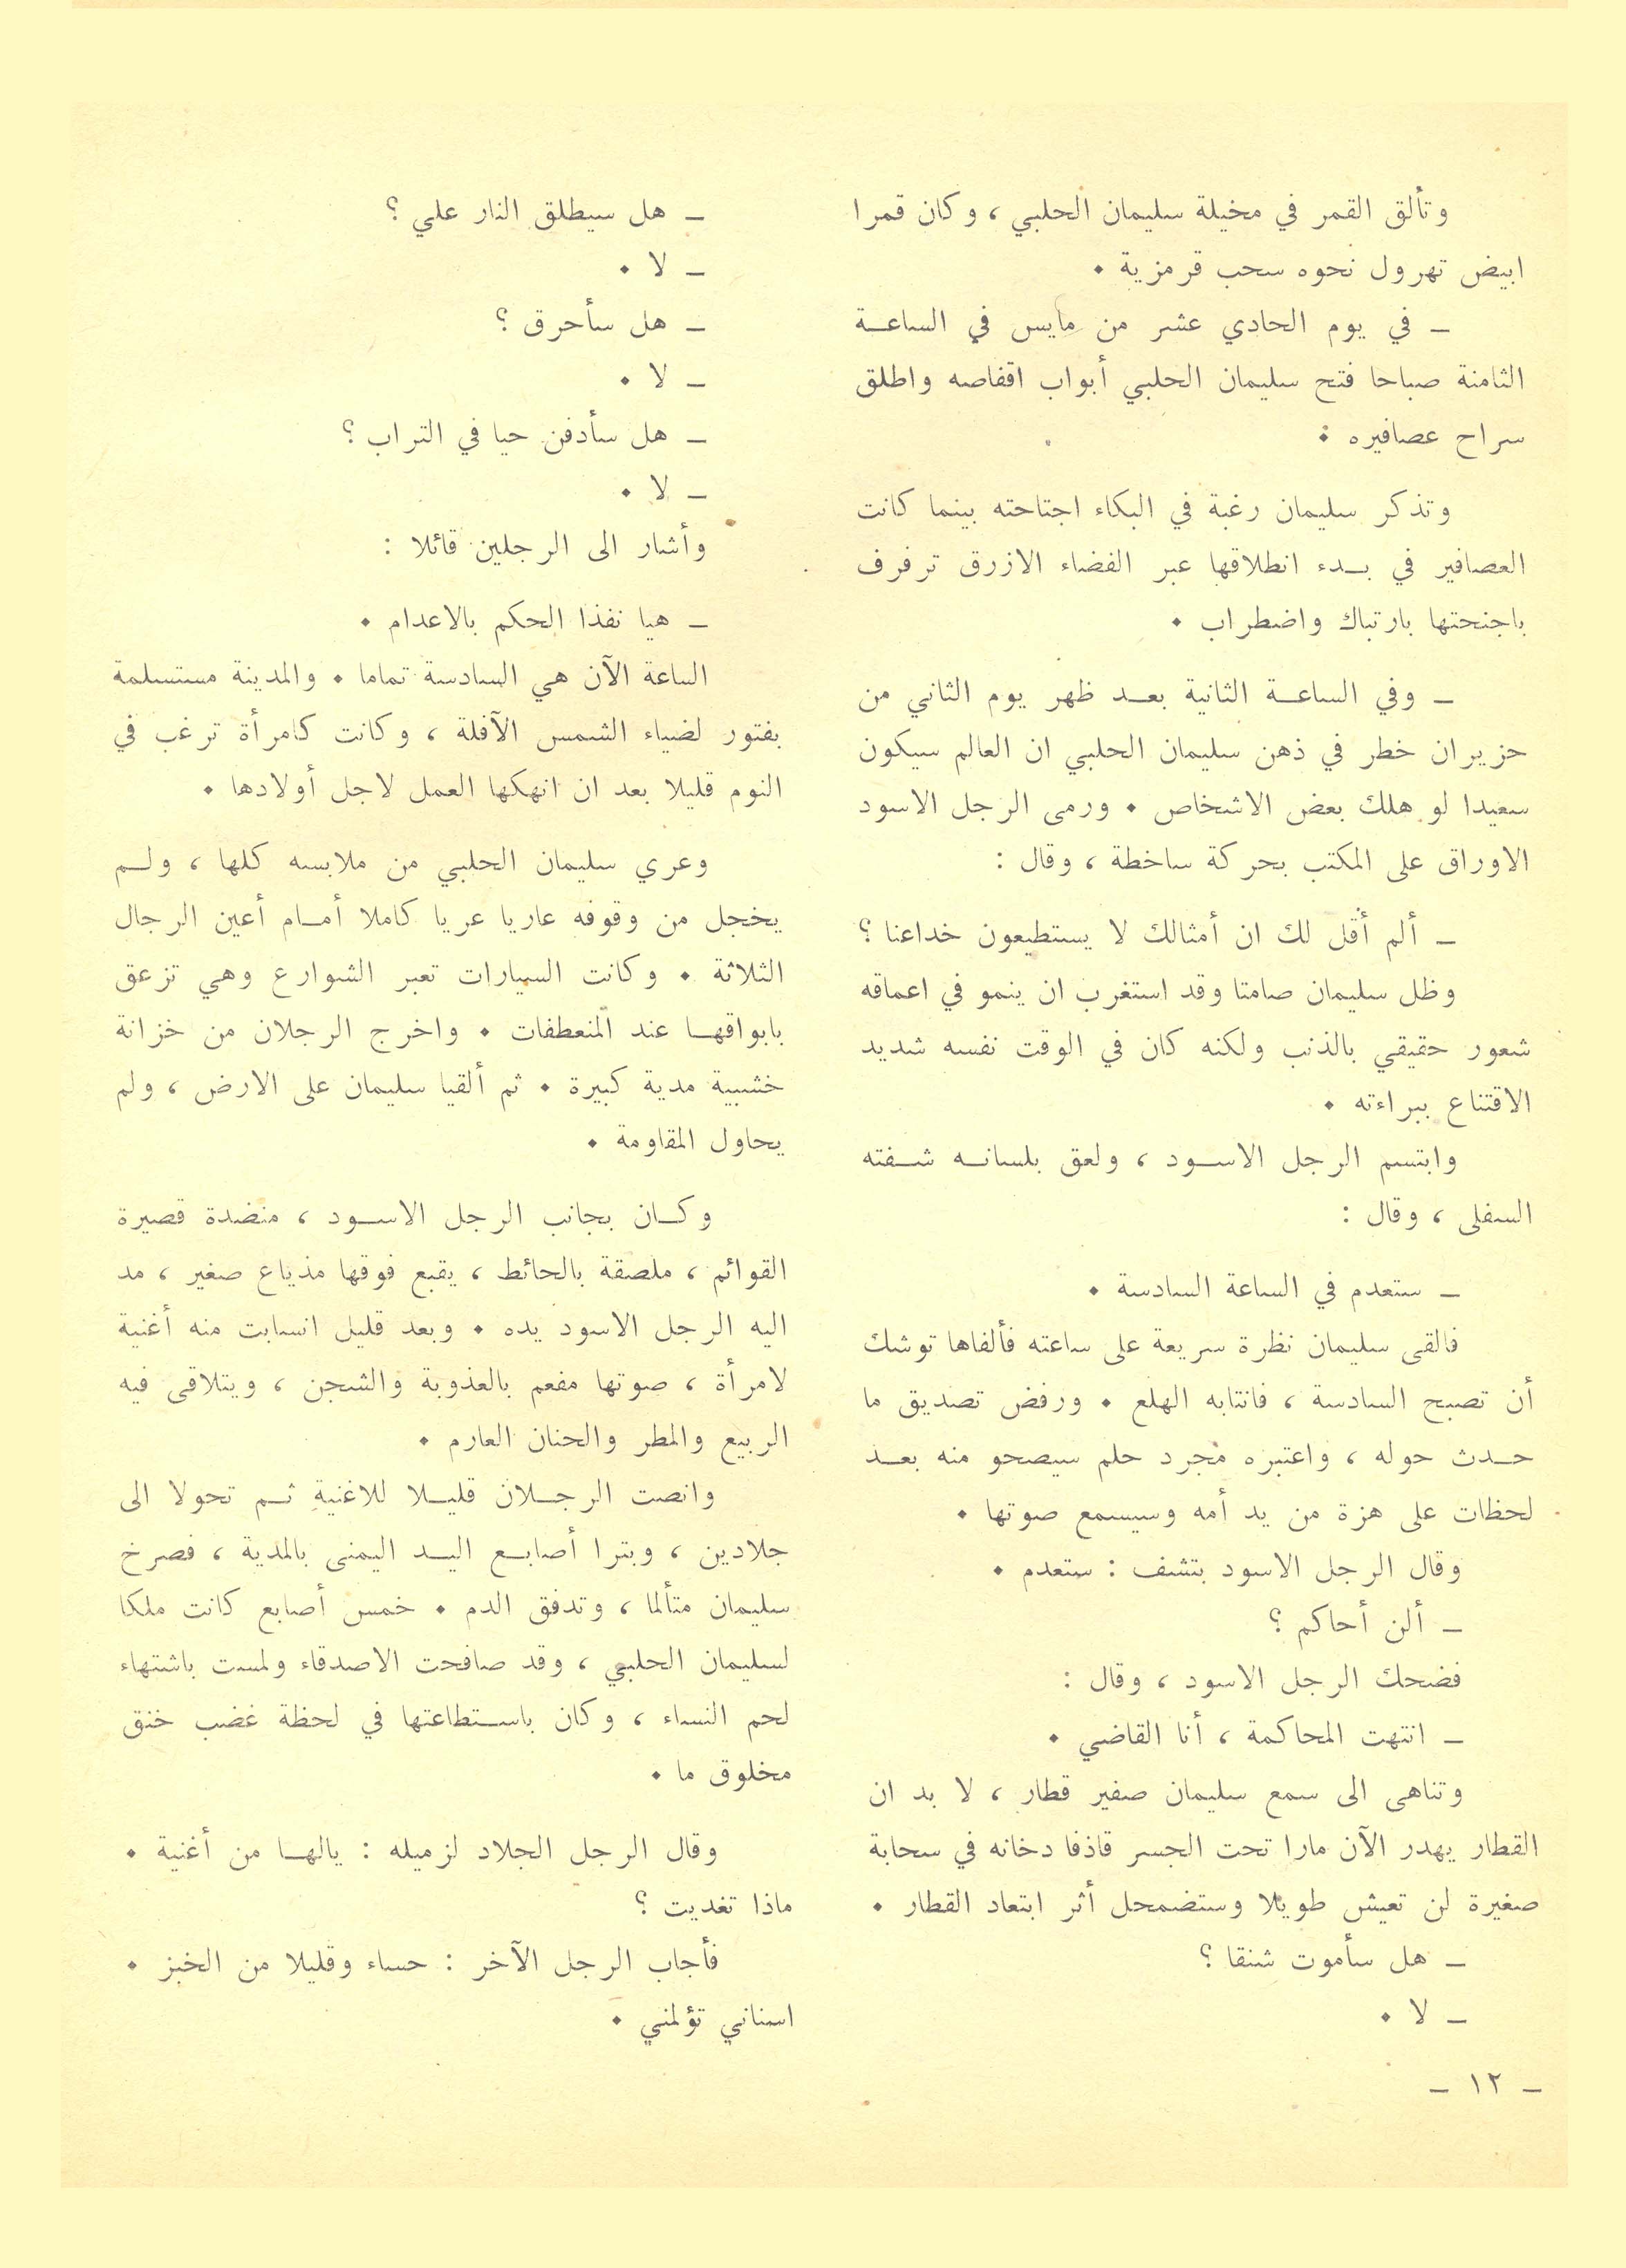 وتألق القمر في مخيلة سليمان الحلبي ، وكان قمرا
ابيض تهرول نحوه سحب قرمزية .
ـ في يوم الحادي عشر من مايس في الساعـة
الثامنة صباحا فتح سليمان الحلبي أبواب اقفاصه واطلق
سراح عصافيره .
وتذكر سليمان رغبة في البكاء اجتاحته بينما كانت
العصافير في بـدء انطلاقها عبر الفضاء الازرق ترفرف
باجنحتها بارتباك واضطراب .
ـ وفي الساعـة الثانية بعـد ظهر يوم الثاني من
حزيران خطر في ذهن سليمان الحلبي ان العالم سيكون
سعيدا لو هلك بعض الاشخاص . ورمى الرجل الاسود
الاوراق على المكتب بحركة ساخطة ، وقال :
ـ ألم أقل لك ان أمثالك لا يستطيعون خداعنا ؟
وظل سليمان صامتا وقد استغرب ان ينمو في اعماقه
شعور حقيقي بالذنب ولكنه كان في الوقت نفسه شديد
الاقتناع ببراءته .
وابتسم الرجل الاسـود ، ولعق بلسانـه شـفته
السفلى ، وقال :
ـ ستعدم في الساعة السادسة .
فالقى سليمان نظرة سريعة على ساعته فألفاها توشك
أن تصبح السادسة ، فانتابه الهلع . ورفض تصديق ما
حـدث حوله ، واعتبره مجرد حلم سيصحو منه بعـد
لحظات على هزة من يد أمه وسيسمع صوتها .
وقال الرجل الاسود بتشف : ستعدم .
ـ ألن أحاكم ؟
فضحك الرجل الاسود ، وقال :
ـ انتهت المحاكمة ، أنا القاضي .
وتناهى الى سمع سليمان صفير قطار ، لا بد ان
القطار يهدر الآن مارا تحت الجسر قاذفا دخانه في سحابة
صغيرة لن تعيش طويلا وستضمحل أثر ابتعاد القطار .
ـ هل سأموت شنقا ؟
ـ لا .
ـ ١٢ ـ
ـ هل سيطلق النار علي ؟
ـ لا .
ـ هل سأحرق ؟
ـ لا .
ـ هل سأدفن حيا في التراب ؟
ـ لا .
وأشار الى الرجلين قائلا :
ـ هيا نفذا الحكم بالاعدام .
الساعة الآن هي السادسة تماما . والمدينة مستسلمة
بفتور لضياء الشمس الآفلة ، وكانت كامرأة ترغب في
النوم قليلا بعد ان انهكها العمل لاجل أولادها .
وعري سليمان الحلبي من ملابسه كلها ، ولـم
يخجل من وقوفه عاريا عريا كاملا أمـام أعين الرجال
الثلاثة . وكانت السيارات تعبر الشوارع وهي تزعق
بابواقهـا عند المنعطفات . واخرج الرجلان من خزانة
خشبية مدية كبيرة . ثم ألقيا سليمان على الارض ، ولم
يحاول المقاومة .
وكـان بجانب الرجل الاسـود ، منضدة قصيرة
القوائم ، ملصقة بالحائط ، يقبع فوقها مذياع صغير ، مد
اليه الرجل الاسود يده . وبعد قليل انسابت منه أغنية
لامرأة ، صوتها مفعم بالعذوبة والشجن ، ويتلاقى فيه
الربيع والمطر والحنان العارم .
وانصت الرجـلان قليـلا للاغنية ثـم تحولا الى
جلادين ، وبترا أصابـع اليـد اليمنى بالمدية ، فصرخ
سليمان متألما ، وتدفق الدم . خمس أصابع كانت ملكا
لسليمان الحلبي ، وقد صافحت الاصدقاء ولمست باشتهاء
لحم النساء ، وكان باسـتطاعتها في لحظة غضب خنق
مخلوق ما .
وقال الرجل الجلاد لزميله : يالهـا من أغنية .
ماذا تغديت ؟
فأجاب الرجل الآخر : حساء وقليلا من الخبز .
اسناني تؤلمني .